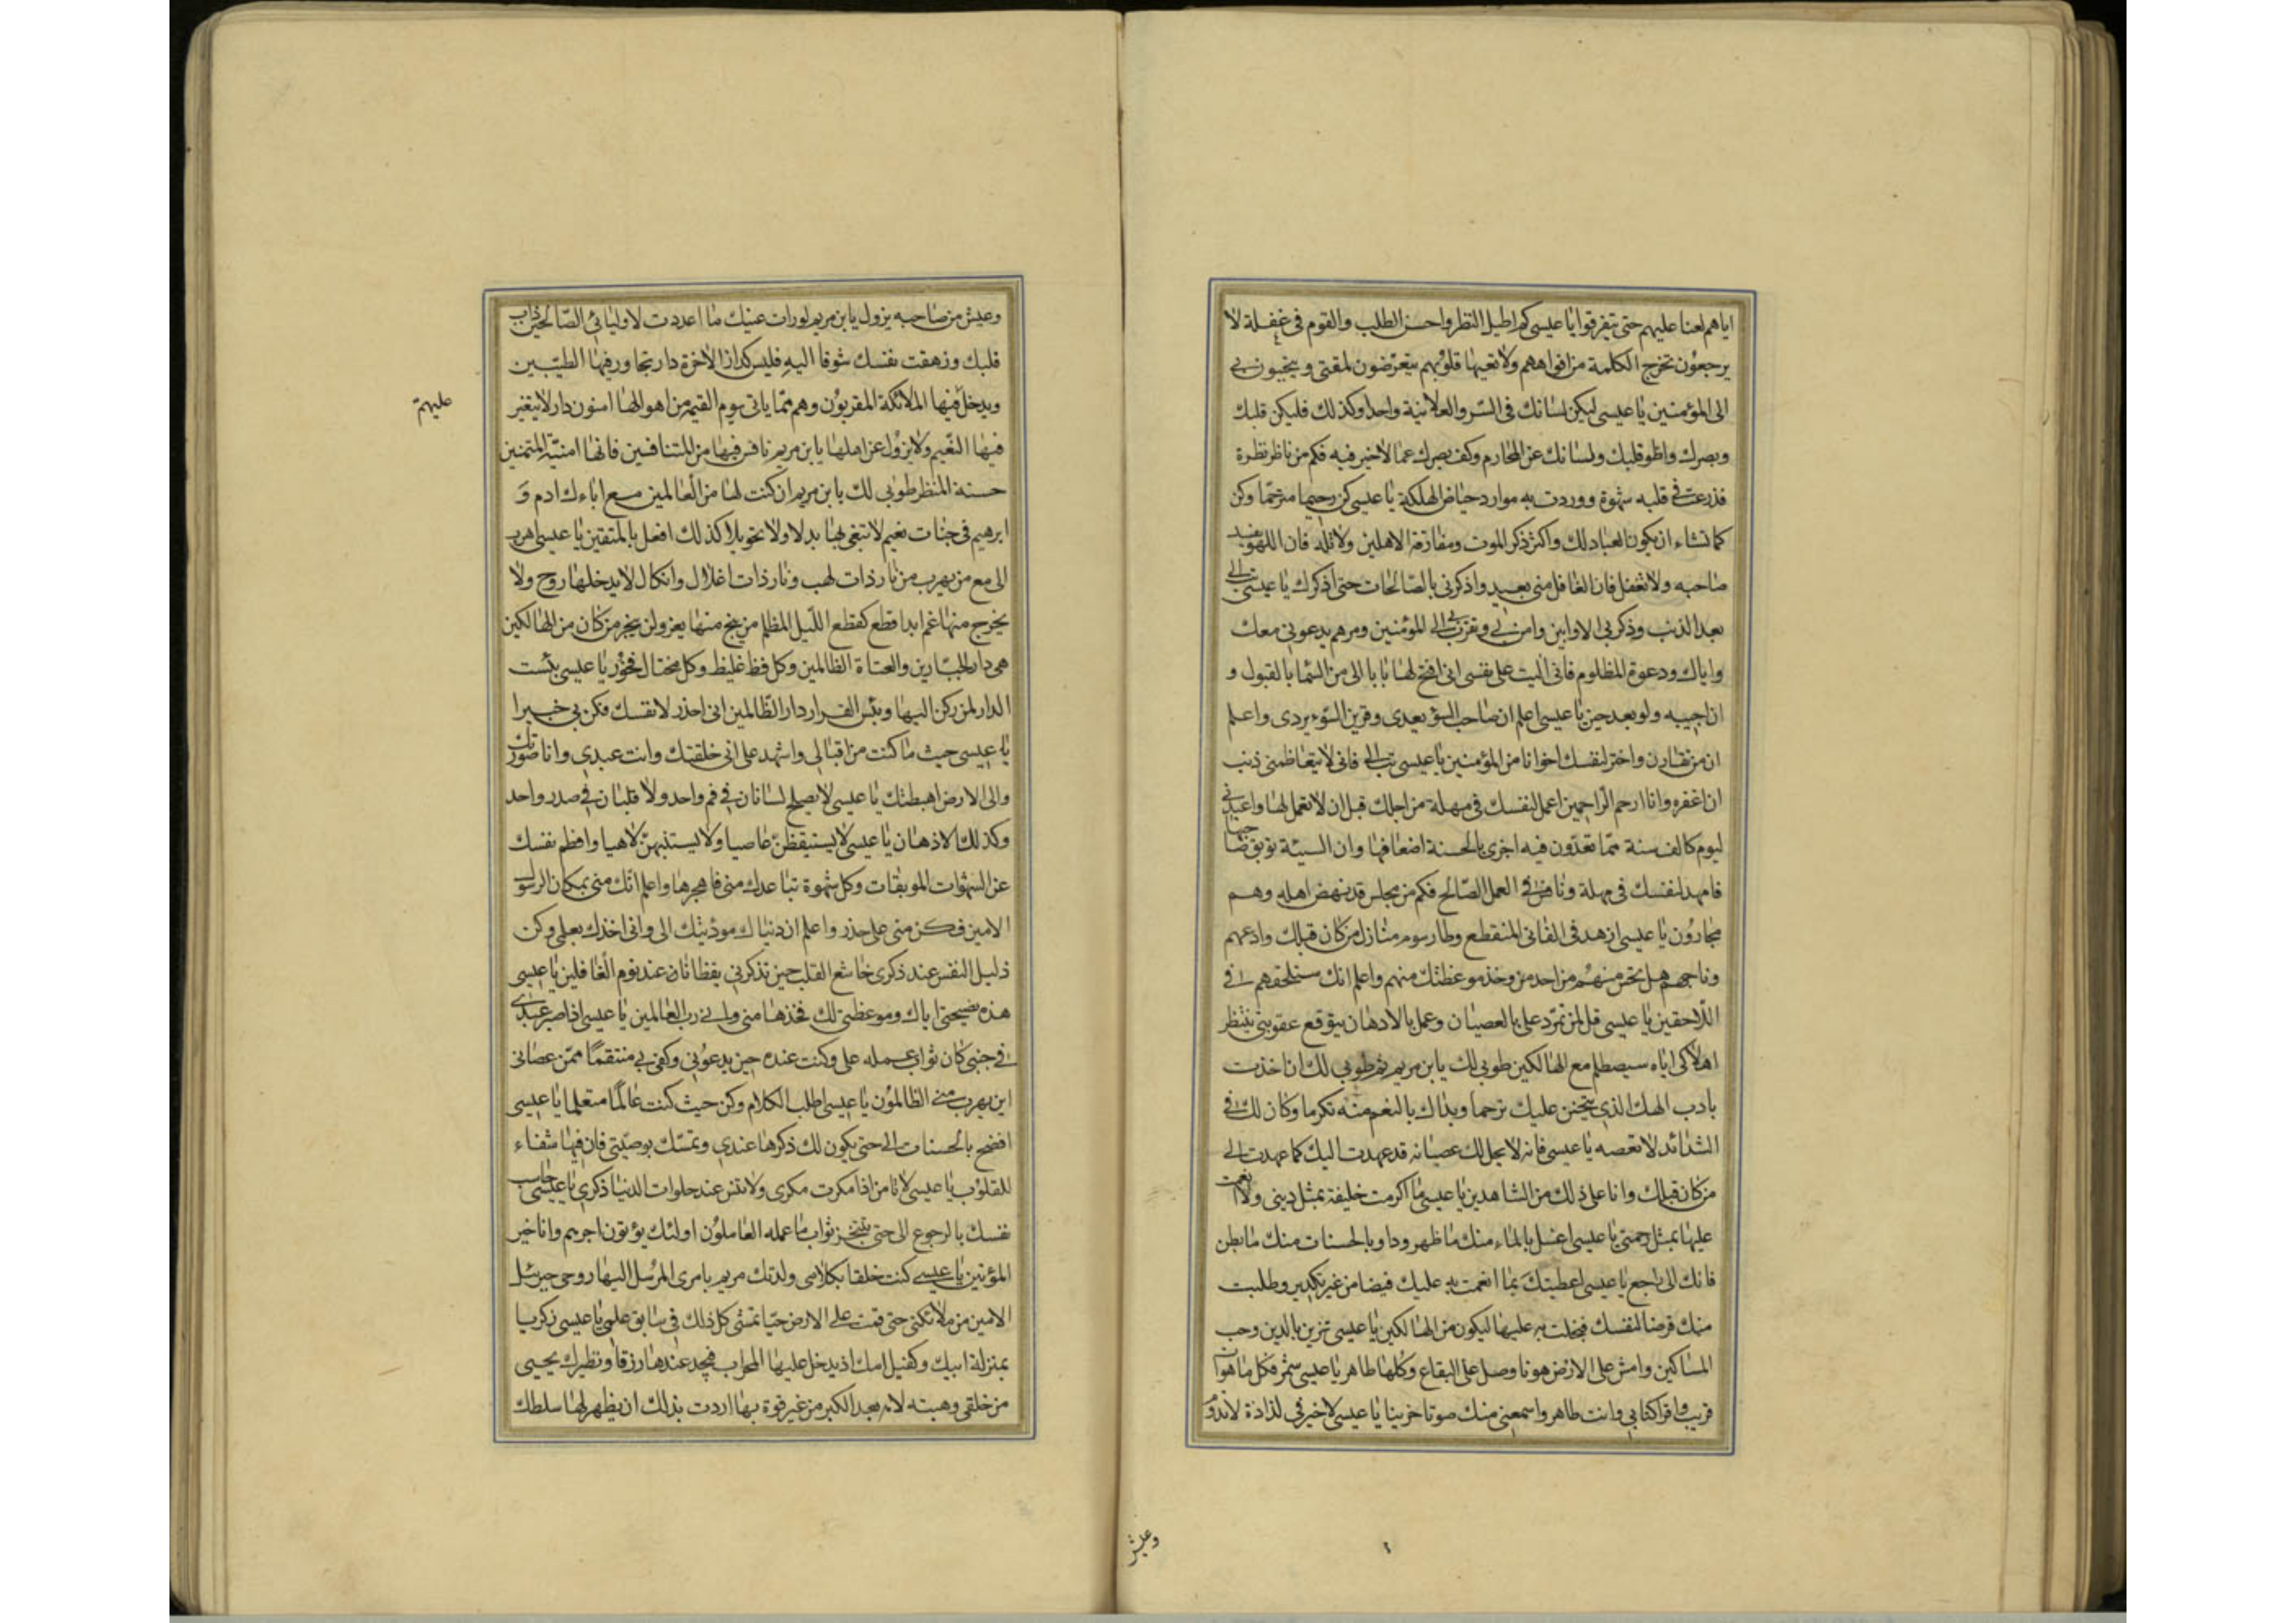 اياهم لعنا عليهم حتى يتفرقوا يا عيسى كم اطيل النظر واحسن الطلب والقوم فى غفلة لا
يرجعون تخرج الكلمة من افواههم ولا تعيها قلوبهم يتعرضون لمقتى ويتحببون بى
الى المؤمنين يا عيسى ليكن لسانك فى السر والعلانية واحدا وكذلك فليكن قلبك
وبصرك واطو قلبك ولسانك عن المحارم وكف بصرك عما لا خير فيه فكم من ناظر نظرة
قد زرعت فى قلبه شهوة ووردت به موارد حياض الهلكة يا عيسى كن رحيما مترحما وكن
كما تشاء ان يكون العباد لك واكثر ذكر الموت ومفارقة الاهلين ولا تله فان اللهو يفسد
صاحبه ولا تغفل فان الغافل منى بعيد واذكرنى بالصالحات حتى اذكرك يا عيسى تب الى
بعد الذنب وذكر بى الاوابين وامن بى وتقرب بى الى المؤمنين ومرهم يدعونى معك
واياك ودعوة المظلوم فانى اليت على نفسى ان افتح لها بابا الى من السما بالقبول و
ان اجيبه ولو بعد حين يا عيسى اعلم ان صاحب السوء يعدى وقرين السوء يردى واعلم
ان من تقارن واختر لنفسك اخوانا من المؤمنين يا عيسى تب الى فانى لا يتعاظمنى ذنب
ان اغفره وانا ارحم الراحمين اعمل لنفسك فى مهلة من اجلك قبل ان لا تعمل لها واعبدنى
ليوم كالف سنة مما تعدون فيه اجزى بالحسنة اضعافها وان السيئة توبق صاحبها
فامهد لنفسك فى مهلة ونافس فى العمل الصالح فكم من مجلس قد نهض اهله وهم
مجارون يا عيسى ازهد فى الفانى المنقطع وطا رسوم منازل من كان قبلك وادعهم
وناجهم هل تحس منهم من احد من وخذ موعظتك منهم واعلم انك ستلحقهم فى
اللاحقين يا عيسى قل لمن تمرد على بالعصيان وعمل بالادهان يتوقع عقوبتى ينتظر
اهلاكى اياه سيصطلم مع الهالكين طوبى لك يابن مريم ثم طوبى لك ان اخذت
بادب الهك الذى يتحنن عليك ترحما وبداك بالنعم منه تكرما وكان لك فى
الشدائد لا تعصه يا عيسى فانه لا يحل لك عصيانه قد عهدت اليك كما عهدت الى
من كان قبلك وانا على ذلك من الشاهدين يا عيسى ما اكرمت خليقة بمثل دينى ولا انعمت
عليها بمثل رحمتى يا عيسى اغسل بالماء منك ما ظهر وداو بالحسنات منك ما بطن
فانك الى راجع يا عيسى اعطيتك بما انعمت به عليك فيضا من غير تكدير وطلبت
منك قرضا لنفسك فبخلت به عليها ليكون من الهالكين يا عيسى تزين بالدين وحب
المساكين وامش على الارض هونا وصل على البقاع وكلها طاهر يا عيسى شمر فكل ما هو ات
قريب واقرا كتابى وانت طاهر واسمعنى منك صوتا حزينا يا عيسى لا خير فى لذاذة لا تدوم
وعيش
وعيش من صاحبه يزول يابن مريم لو رات عينك ما اعددت لاوليائى الصالحين ذاب
قلبك وزهقت نفسك شوقا اليه فليس كدار الاخرة دار تجاور فيها الطيبين
ويدخل فيها الملائكة المقربون وهم مما ياتى يوم القيمة من اهوالها امنون دار لا يتغير
عليهم
فيها النعيم ولا يزول عن اهلها يابن مريم نافس فيها من المتنافسين فانها امنية المتمنين
حسنة المنظر طوبى لك يابن مريم ان كنت لها من العالمين مع اباءك ادم و
ابرهيم فى جنات نعيم لا تبغى بها بدلا ولا تحويلا كذلك افعل بالمتقين يا عيسى اهرب
الى مع من يهرب من نار ذات لهب ونار ذات اغلال وانكال لا يدخلها روح ولا
يخرج منها غم ابدا قطع كقطع الليل المظلم من ينج منها يفز ولن ينجو من كان من الهالكين
هى دار الجبارين والعتاة الظالمين وكل فظ غليظ وكل مختال فخور يا عيسى بئست
الدار لمن ركن اليها وبئس القرار دار الظالمين انى احذر لا نفسك فكن بى خبيرا
يا عيسى حيث ما كنت مراقبا لى واشهد على انى خلقتك وانت عبدى وانا صورتك
والى الارض اهبطتك يا عيسى لا يصلح لسانان فى فم واحد ولا قلبان فى صدر واحد
وكذلك الاذهان يا عيسى لا يستيقظن عاصيا ولا يستنبهن لاهيا وافطم نفسك
عن الشهوات الموبقات وكل شهوة تباعدك منى فاهجرها واعلم انك منى بمكان الرسول
الامين فكن منى على حذر واعلم ان دنياك مودئتك الى وانى اخذك بعلمى وكن
ذليل النفس عند ذكرى خاشع القلب حين تذكرنى يقظانا عند نوم الغافلين يا عيسى
هذه نصيحتى اياك وموعظتى لك فخذها منى وانى رب العالمين يا عيسى اذا صبر عبدى
فى جنبى كان ثواب عمله على وكنت عنده حين يدعونى وكفى بى منتقما ممن عصانى
اين يهرب منى الظالمون يا عيسى اطلب الكلام وكن حيث كنت عالما متعلما يا عيسى
افضح بالحسنات الى حتى يكون لك ذكرها عندى وتمسك بوصيتى فان فيها شفاء
للقلوب يا عيسى لا تامن اذا مكرت مكرى ولا تنس عند حلوات الدنيا ذكرى يا عيسى حاسب
نفسك بالرجوع الى حتى يتنجز ثواب ما عمله العاملون اولئك يؤتون اجرهم وانا خير
المؤتين يا عيسى كنت خلقا بكلامى ولدتك مريم بامرى المرسل اليها روحى جبرئيل
الامين من ملائكتى حتى قمت على الارض حيا تمشى كل ذلك فى سابق علمى يا عيسى زكريا
بمنزلة ابيك وكفيل امك اذ يدخل عليها المحراب فيجد عندها رزقا ونظيرك يحيى
من خلقى وهبته لامه بعد الكبر من غير قوة بها اردت بذلك ان يظهر لها سلطانك